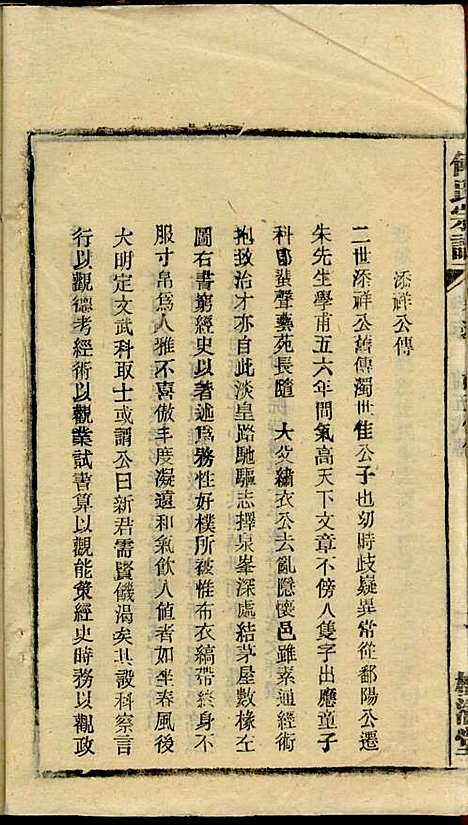 氏宗譜
添祥公傳
二世添祥公舊傳濁世佳公子也幼時歧嶷異常從鄱陽公遷
朱先生學甫五六年間氣高天下文章不傍人隻字出應童子
科即蜚聲藝苑長隨 大父繡衣公去亂隱懷邑雖素通經術
抱致治才亦自此淡皇路馳驅志擇泉峯深處結茅屋數椽左
圖右書窮經史以著述爲務性好樸所被惟布衣縞帶終身不
服寸帛爲人雅不喜傲丰度凝遠和氣飲人値者如坐春風後
大明定文武科取士或謂公曰新君需賢饑渴矣其設科察言
行以觀德考經術以觀業試書算以觀能策經史時務以觀政